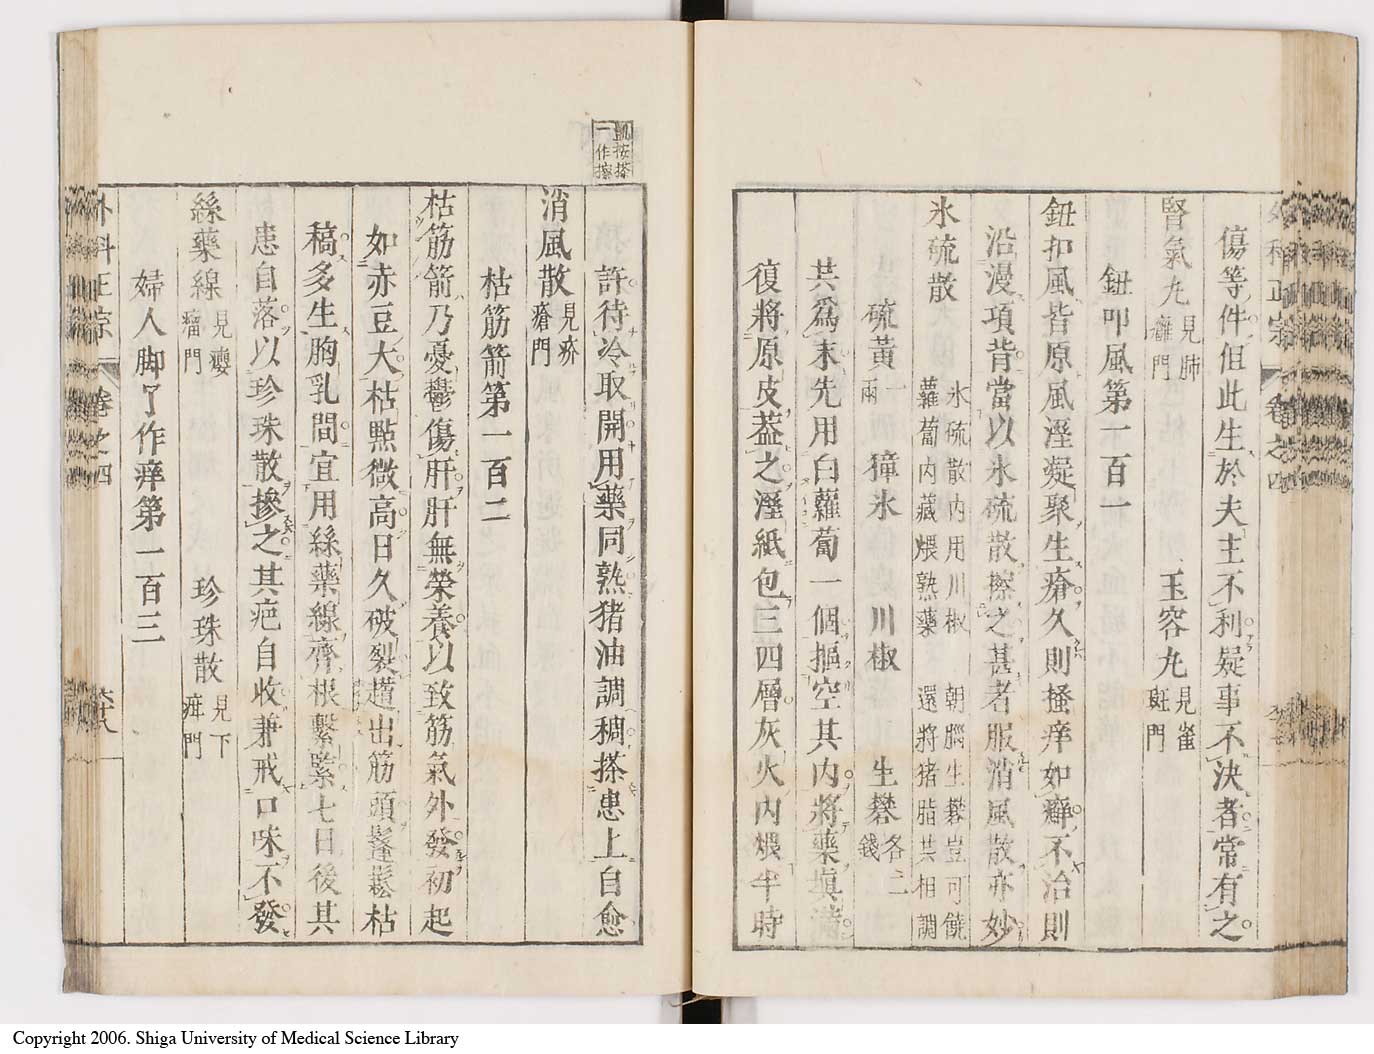 傷等件但此生於夫主不利疑事不決者常有之
腎氣丸見肺癰門 玉容丸見雀斑門
鈕叩風第一百一
鈕扣風皆原風溼凝聚生瘡久則搔痒如癬不治則
沿漫項背當以氷硫散擦之甚者服消風散亦妙
氷硫散 氷硫散内用川椒 朝腦生礬豈可饒 蘿蔔内藏煨熟藥 還將猪脂共相調
硫黄一兩 獐氷 川椒 生礬各二錢
共爲末先用白蘿蔔一個摳空其内將藥塡滿
復將原皮蓋之溼紙包三四層灰火内煨半時
許待冷取開用藥同熟猪油調稠搽患上自愈
消風散見疥瘡門
枯筋箭第一百二
枯筋箭乃憂鬱傷肝肝無榮養以致筋氣外發初起
如赤豆大枯點微高日久破裂趲出筋頭鬔鬆枯
槁多生胸乳間宜用絲藥線齊根繫緊七日後其
患自落以珍珠散摻之其疤自收兼戒口味不發
絲藥線見癭瘤門 珍珠散見下疳門
婦人脚了作痒第一百三
外科正宗 卷之四
凱按搽一作擦
Copyright 2006. Shiga University of Medical Science Library